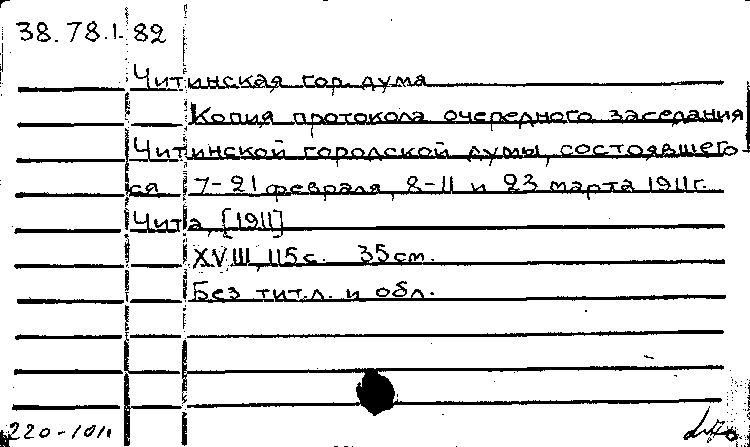 38.78.1.82
Читинская гор. дума
Копия протокола очередного заседания
Читинской городской думы, состоявшего-
ся 7-21 февраля, 8-11 и 23 марта 1911г.
Чита, [1911]
XVIII, 115 с. 35 см.
Без тит.л. и обл.